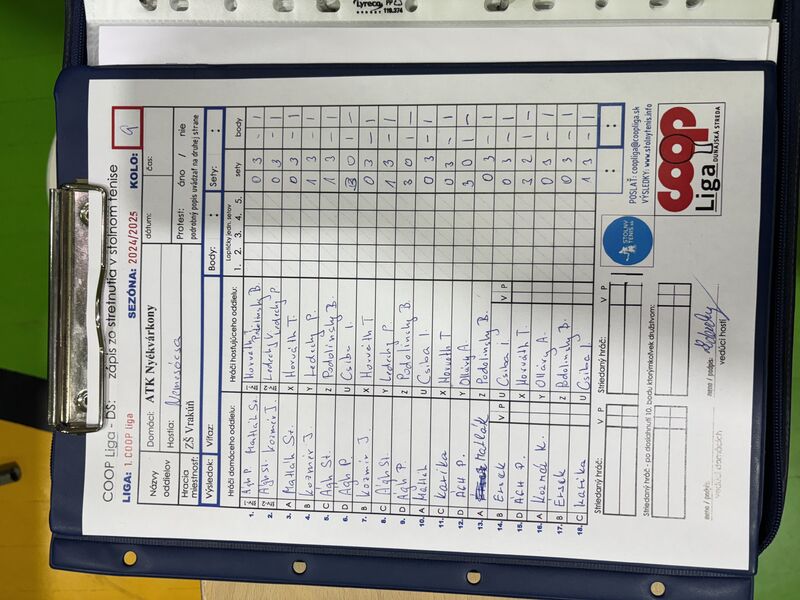 Lyreco
COOP Liga - DS: zápis zo stretnutia v stolnom tenise
LIGA: 1. COOP liga SEZÓNA: 2024/2025 KOLO: 9
Názvy oddielov Domáci: ATK Nyékvárkony dátum: čas:
Hostia: Nemesócsa Protest: áno nie
Hracia miestnosť: ZŠ Vrakúň podrobný popis uvádzať na druhej strane
Výsledok: Víťaz: Body: : Sety: :
Hráči domáceho oddielu: Hráči hosťujúceho oddielu: Loptičky jedn. setov sety body
1. 2. 3. 4. 5.
1. Ágh P. Matlák St. Horváth Podolinský B. 0 3 - 1
2. Ágh St. Kozmér J. Ledecky V. Ledecky P. 0 3 - 1
3. A Matlák St. X Horváth T. 0 3 - 1
4. B Kozmér J. Y Ledecky P. 1 3 - 1
5. C Ágh St. Z Podolinský B. 1 3 - 1
6. D Ágh P. U Csiba I. 3 0 1 -
7. B Kozmér J. X Horváth T. 0 3 - 1
8. C Ágh St. Y Ledecky P. 1 3 - 1
9. D Ágh P. Z Podolinský B. 3 0 1 -
10. A U Csiba I. 0 3 - 1
11. C Karika X Horváth T 0 3 - 1
12. D ÁGH P. Y 3 0 1 -
13. A Matlák Z Podolinský B. 0 3 - 1
V P V P
14. B Érsek U Csiba I. 0 3 - 1
15. D ÁGH P. X Horváth T. 3 2 1 -
16. A K. Y A. 0 3 - 1
17. B Érsek Z Podolinský B. 0 3 - 1
18. C Karika U Csiba I 1 3 - 1
Striedaný hráč: V P Striedaný hráč: V P : :
Striedaný hráč - po dosiahnutí 10. bodu ktorýmkoľvek družstvom:
STOLNÝ TENIS
POSLAŤ: coopliga@coopliga.sk
VÝSLEDKY: www.stolnytenis.info
coop
Liga DUNAJSKÁ STREDA
meno / podpis: meno / podpis:
vedúci domácich vedúci hostí